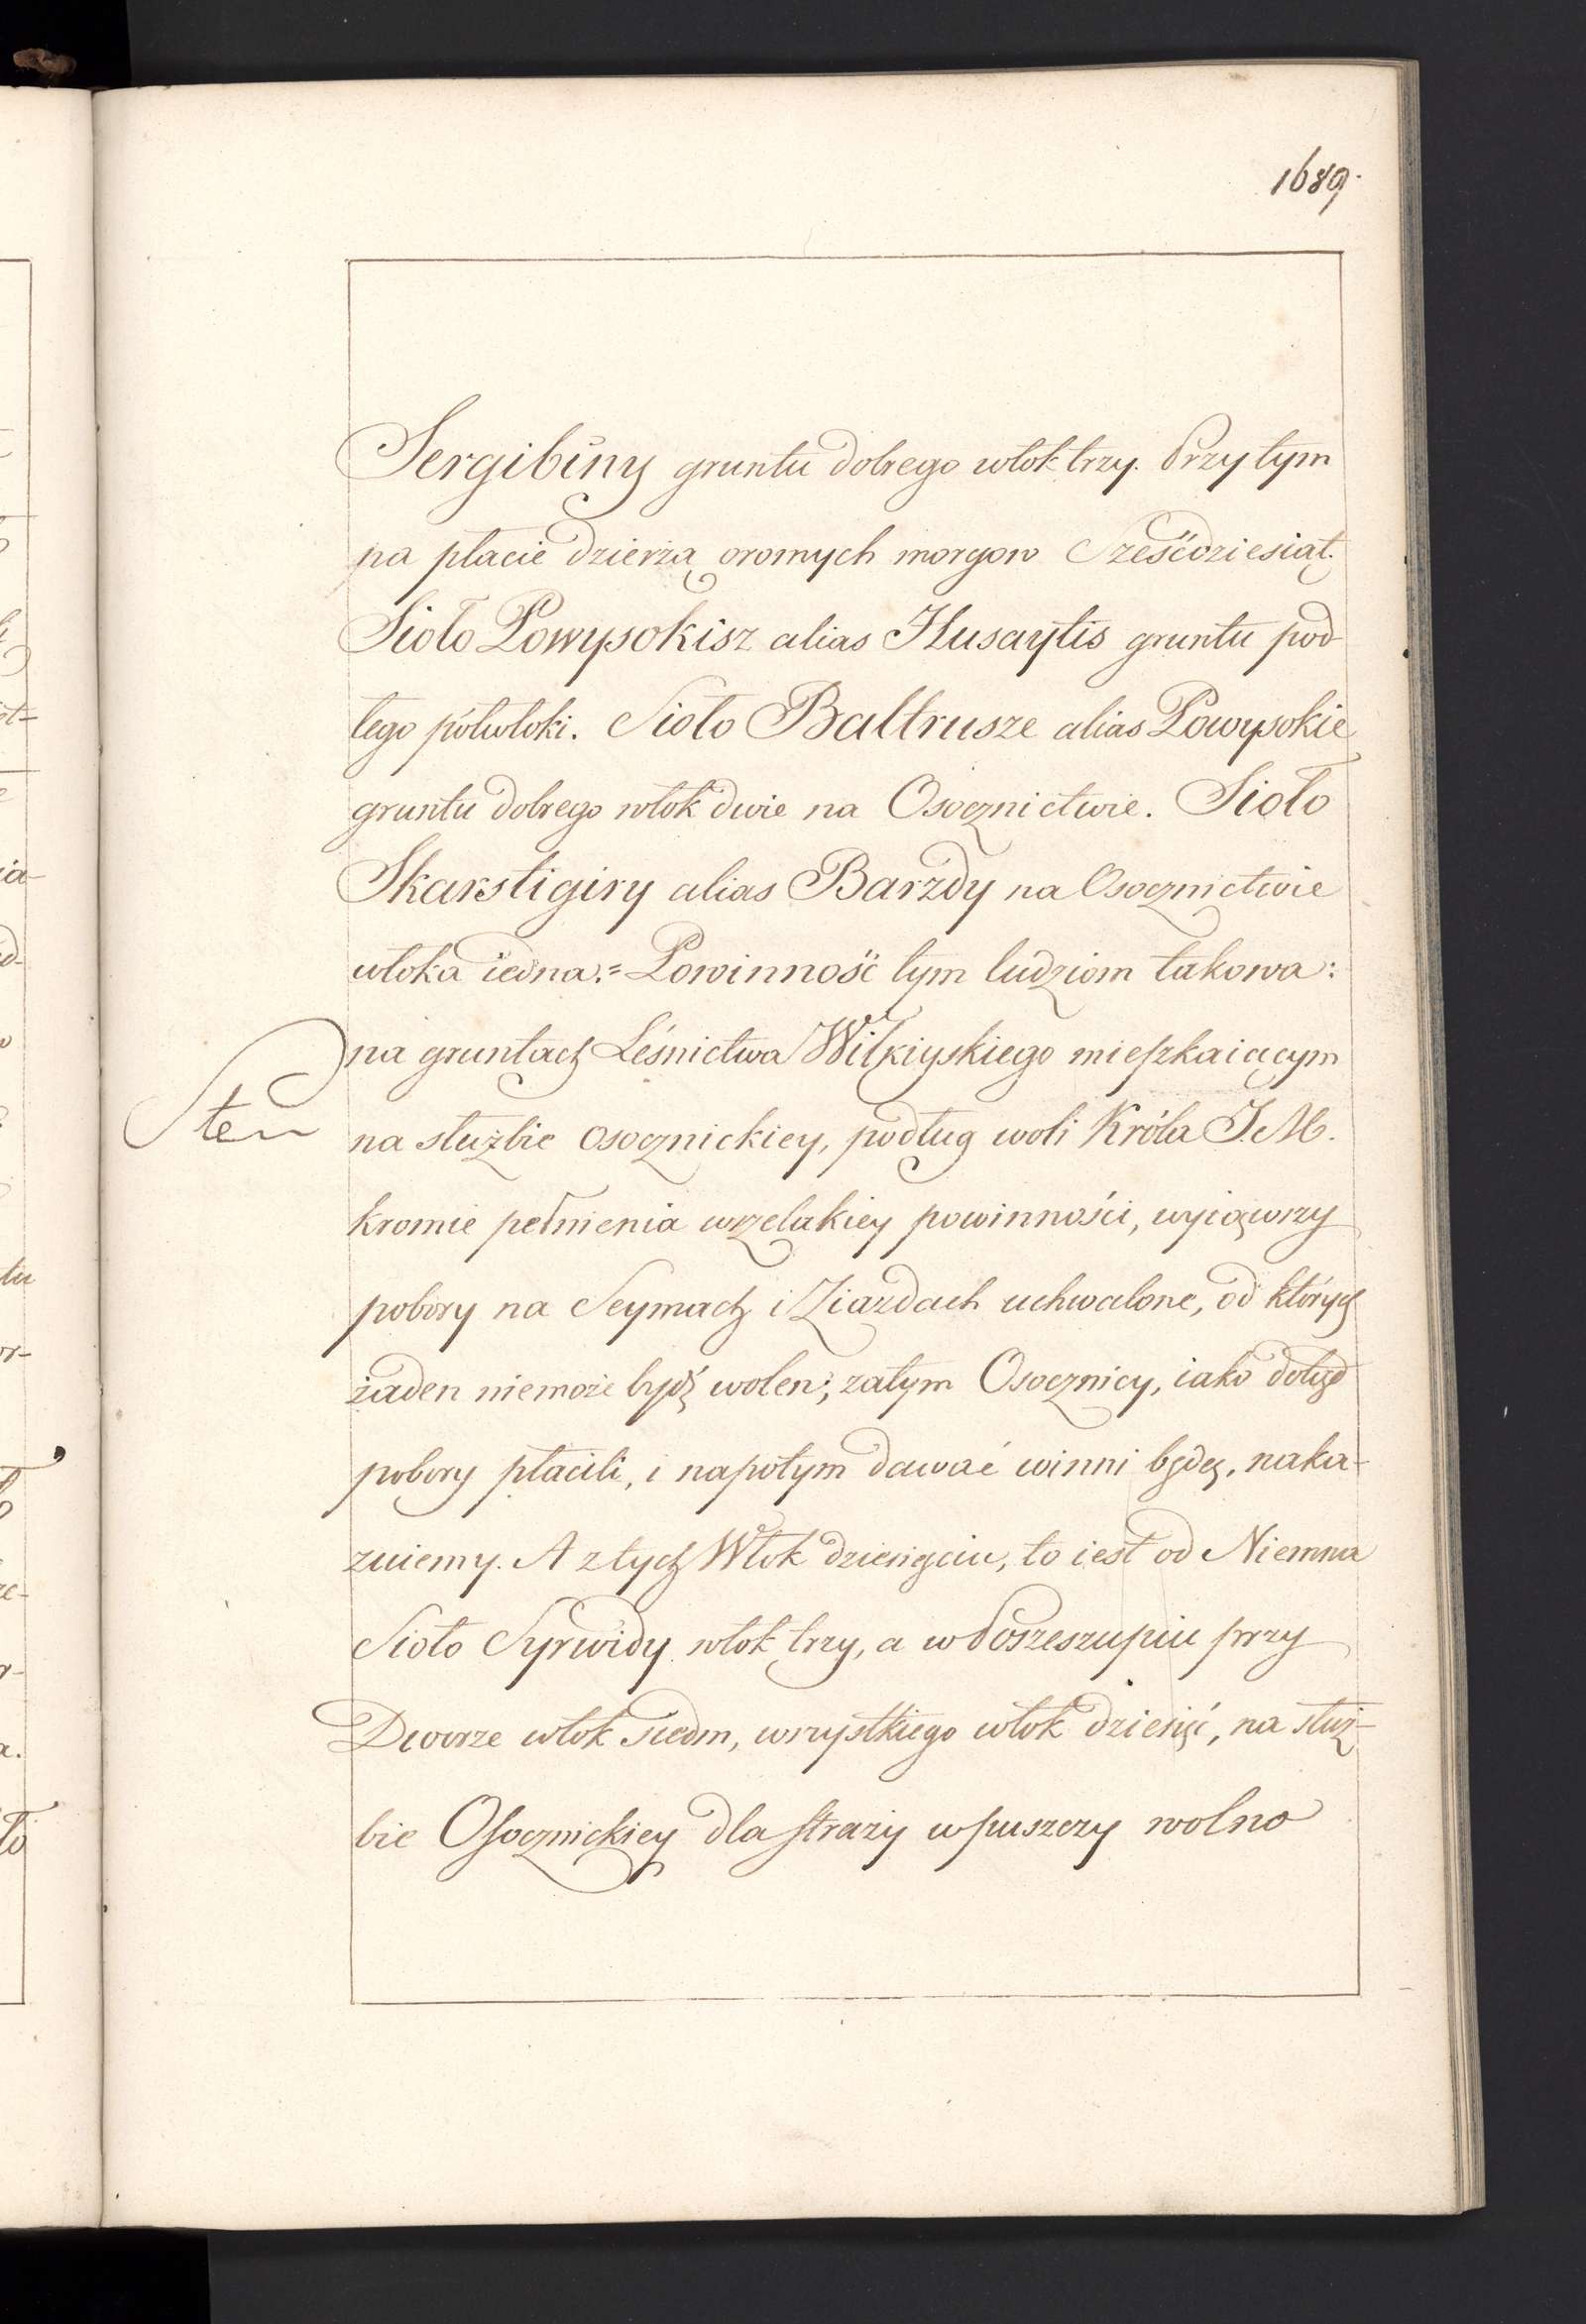 1689.
Sergibuny gruntu dobrego włok trzy. Przytym
na płacie dzierżą oromych morgow Sześćdziesiąt.
Sioło Powysokisz alias Husaytis gruntu pod-
łego półwłoki. Sioło Baltrusze alias Powysokie
gruntu dobrego włok dwie na Osocznictwie. Sioło
Skarstigiry alias Barzdy na Osocznictwie
włoka iedna.= Powinność tym ludziom takowa:
na gruntach Leśnictwa Wilkiyskiego mieszkaiącym
na służbie osocznickiey, podług woli Króla J. M.
kromie pełnienia wszelakiey powinności, wyiąwszy
pobory na Seymach i Ziazdach uchwalone, od których
żaden niemoże bydź wolen; zatym Osocznicy, iako dotąd
pobory płacili, i napotym dawać winni będą, naka-
zuiemy. A z tych Włok dziesięciu, to iest od Niemna
Sioło Syrwidy włok trzy, a w Poszeszupiu przy
Dworze włok siedm, wszystkiego włok dziesięć, na służ-
bie Osocznickiey dla straży w puszczy wolno